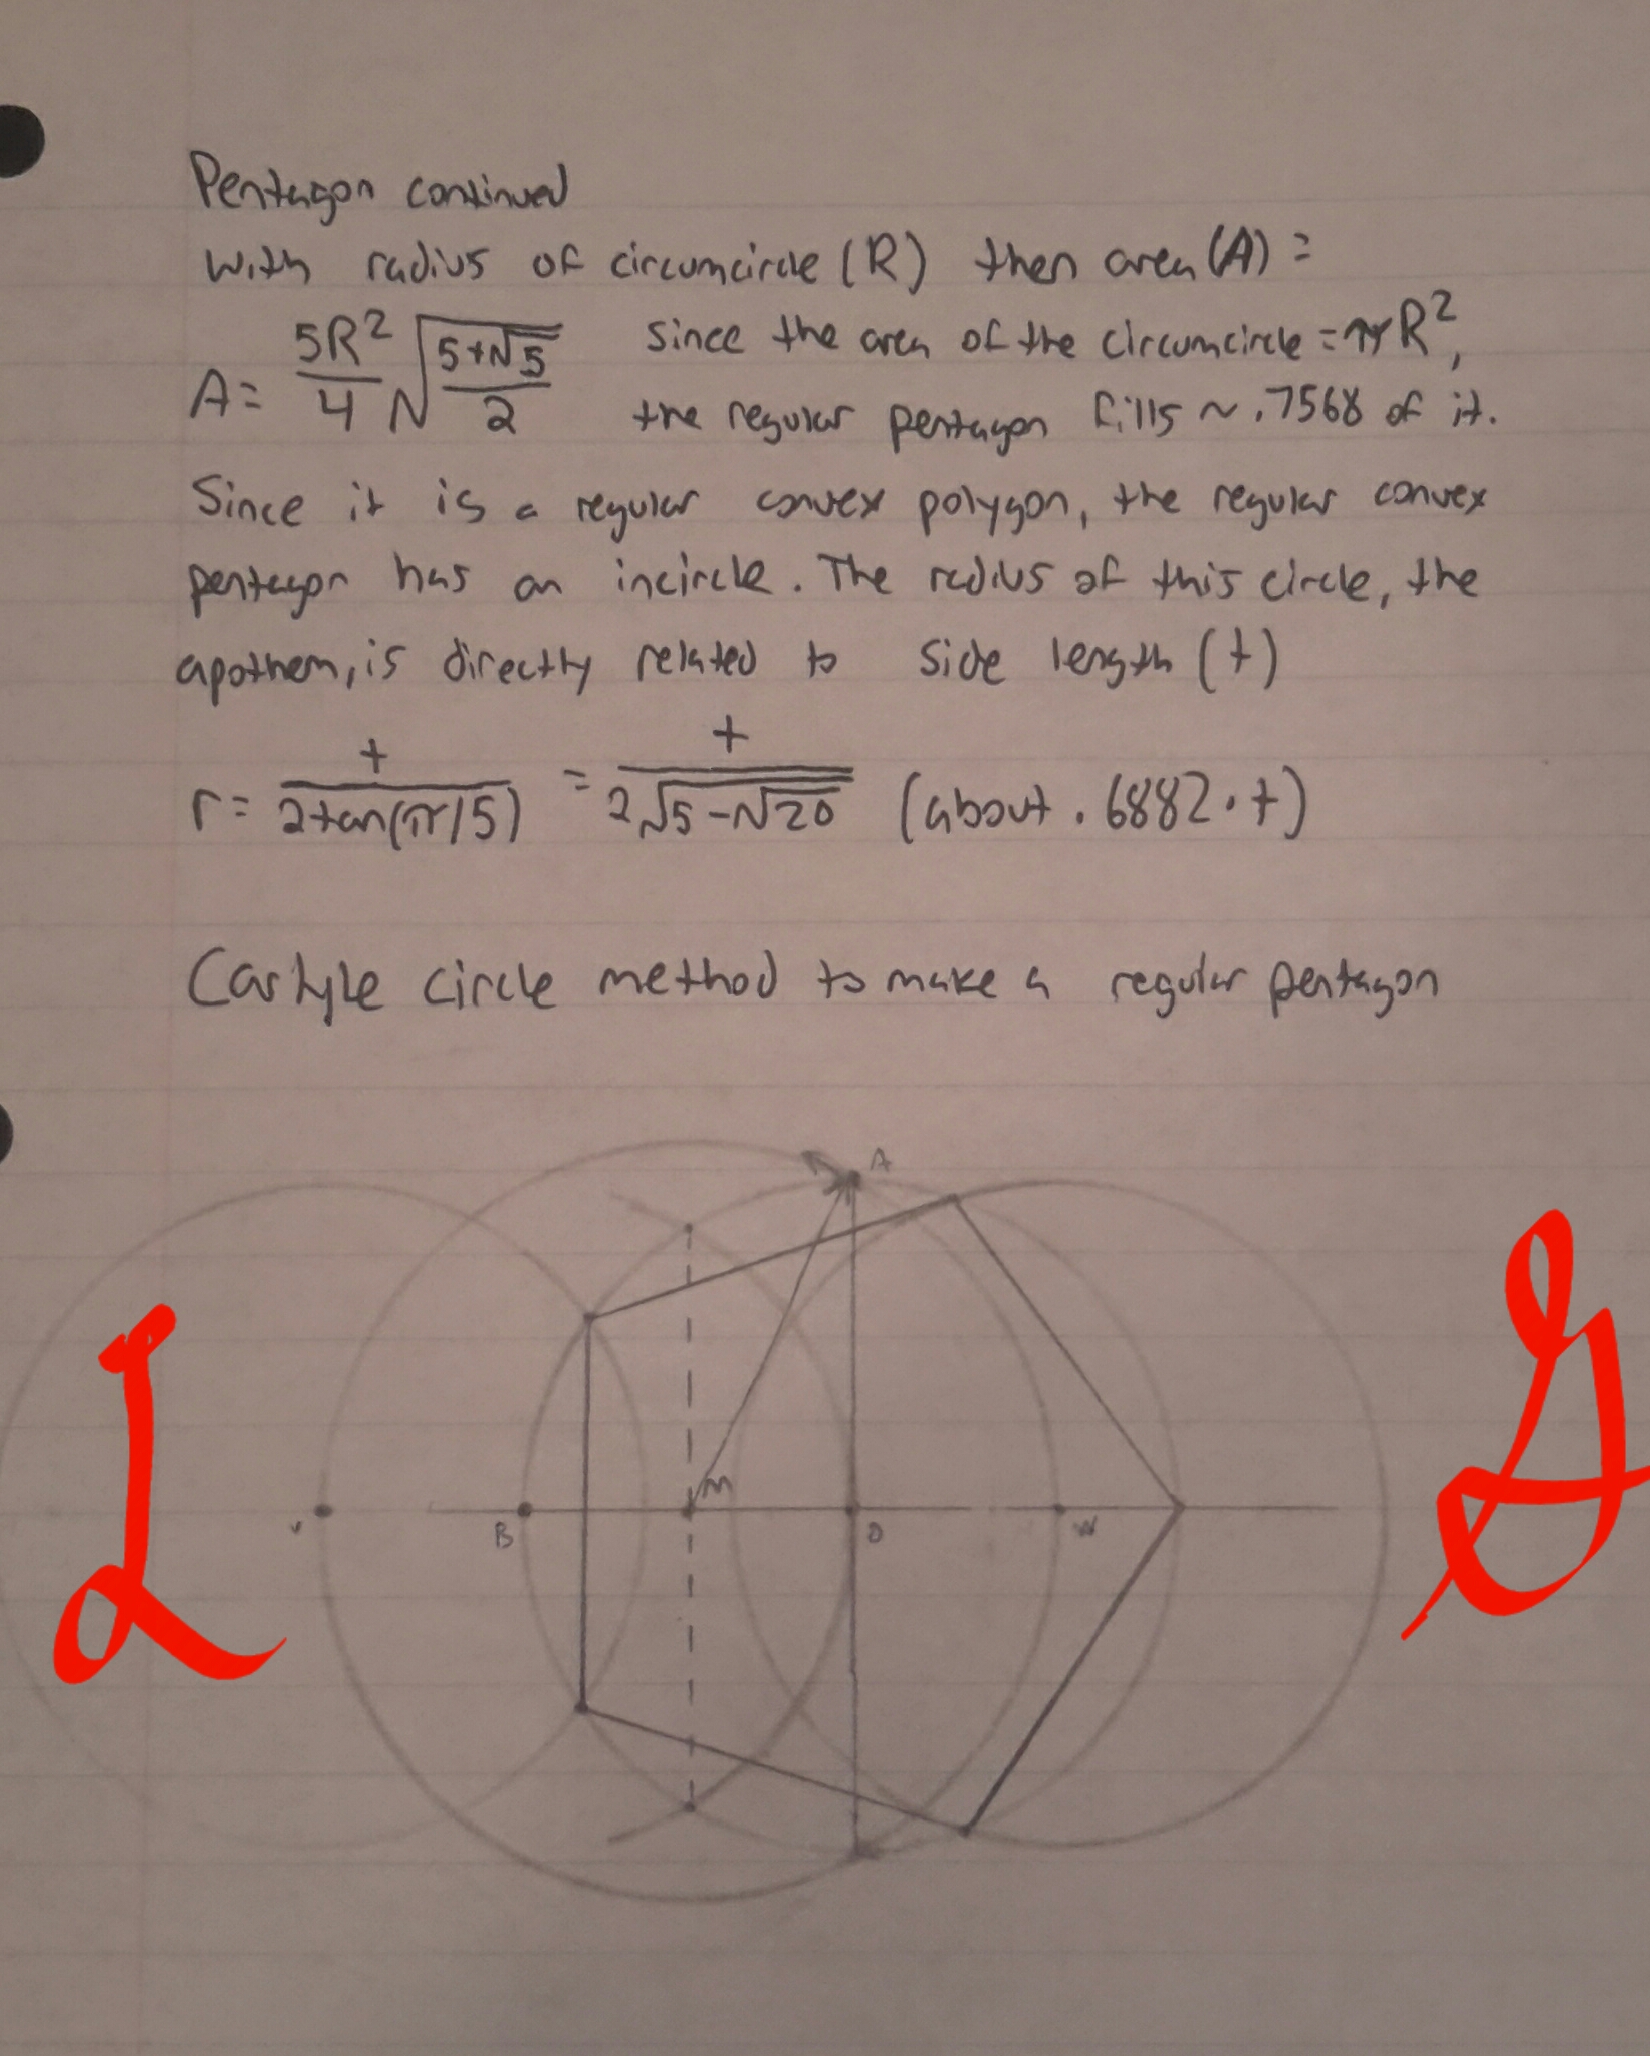 Pentagon continued
With radius of circumcircle (R) then area (A) =
A = 5R²/4 √((5+√5)/2) since the area of the circumcircle = πR²,
the regular pentagon fills ~ .7568 of it.
Since it is a regular convex polygon, the regular convex
pentagon has an incircle. The radius of this circle, the
apothem, is directly related to side length (t)
r = t/(2tan(π/5)) = t/(2√(5-√20)) (about .6882·t)
Carlyle circle method to make a regular pentagon
A
M
V B O W
L G